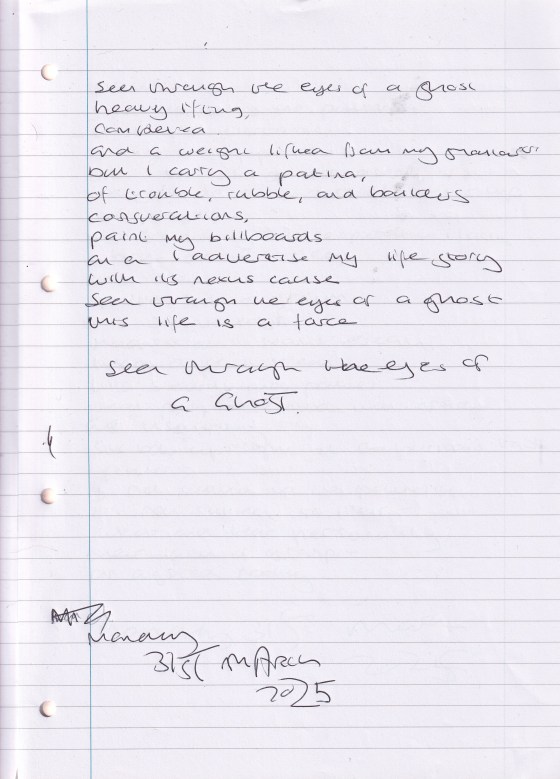 Seen through the eyes of a ghost
heavy lifting,
Considered
and a weight lifted from my shoulders
but I carry a patina,
of trouble, rubble, and boulders
constellations,
paint my billboards
and I advertise my life story
with its nexus cause
Seen through the eyes of a ghost
this life is a farce
Seen through the eyes of
a Ghost.
Monday
31st March
2025